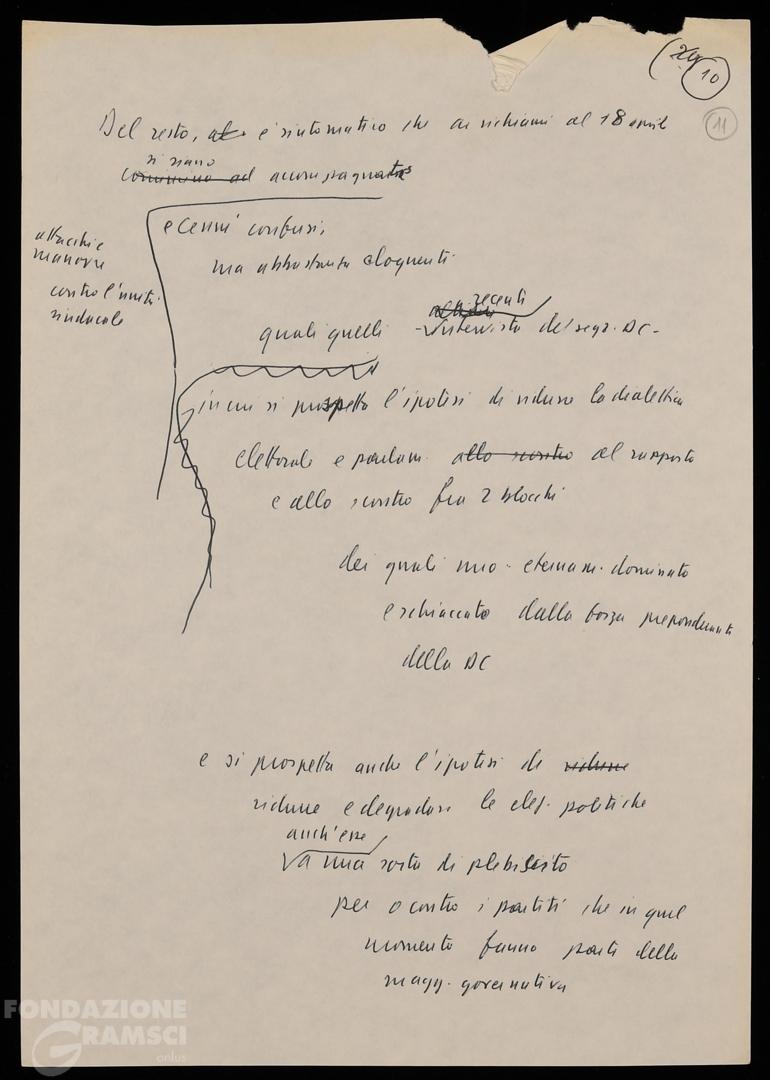 (20
10
11
Del resto, è sintomatico che ai richiami al 18 aprile
si siano
cominino ad accompagnati
attacchi e
manovre
contro l'unità
sindacale
e cenni confusi,
ma abbastanza eloquenti
recenti
quali quelli - intervista del segr. DC -
in cui si prospetta l'ipotesi di ridurre la dialettica
elettorale e parlam. allo scontro al rapporto
e allo scontro fra 2 blocchi
dei quali uno - eternam. dominato
e schiacciato dalla forza preponderante
della DC
e si prospetta anche l'ipotesi di ridurre
ridurre e degradare le elez. politiche
anch'esse
a una sorta di plebiscito
per o contro i partiti che in quel
momento fanno parte della
magg. governativa
FONDAZIONE
GRAMSCI
onlus